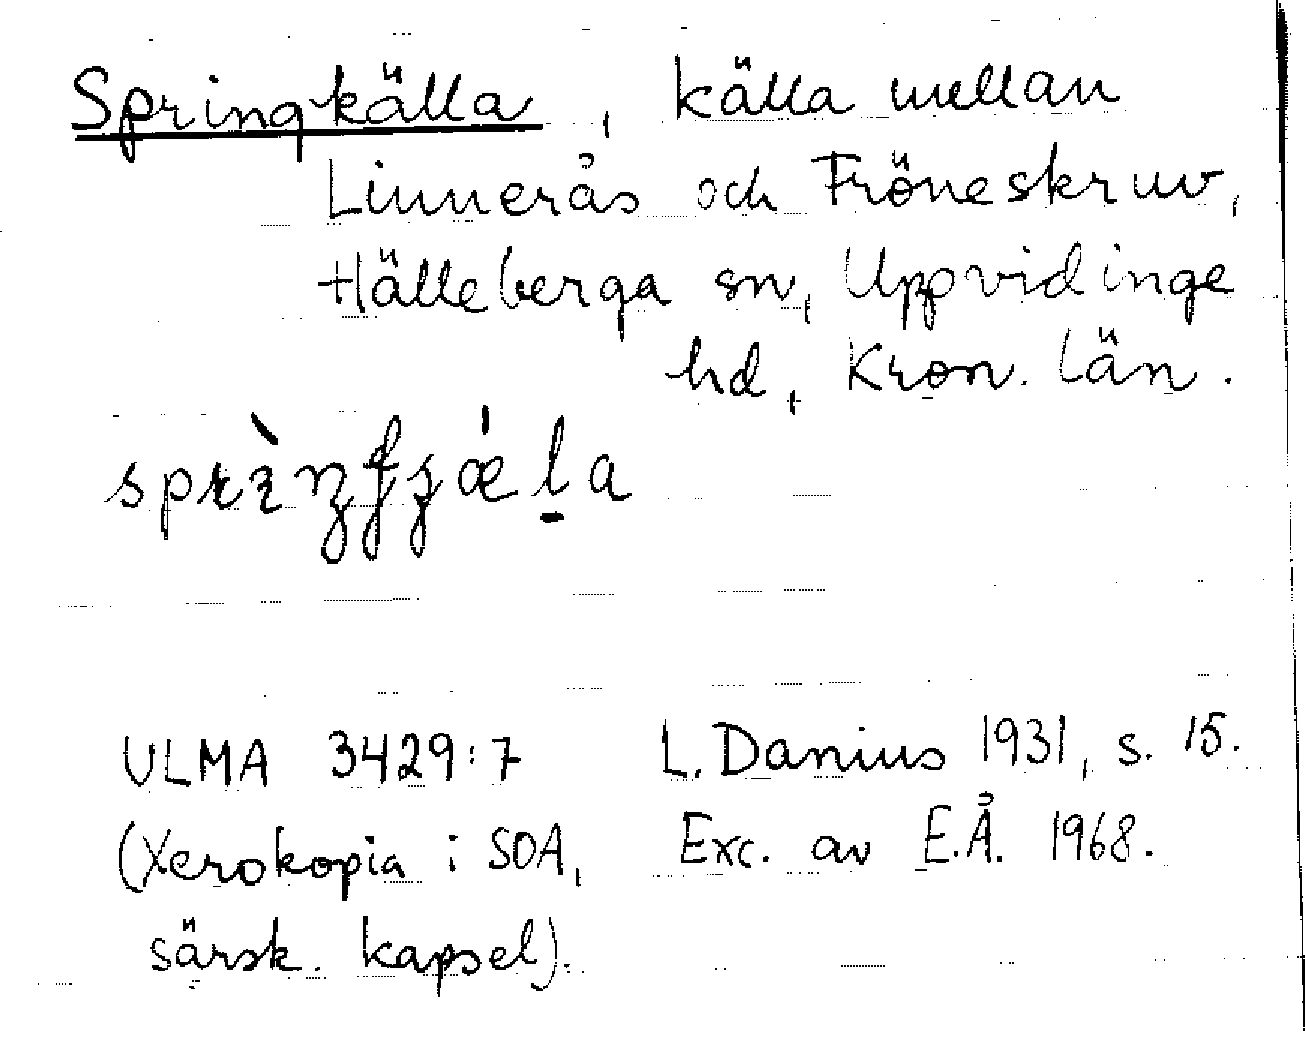 Springkälla, källa mellan
Linnerås och Fröneskruv,
Hälleberga sn, Uppvidinge
hd, Kron. län.
ULMA 3429:7 L. Danius 1931, s. 15.
(Xerokopia i SOA, Exc. av E.Å. 1968.
särsk. kapsel).